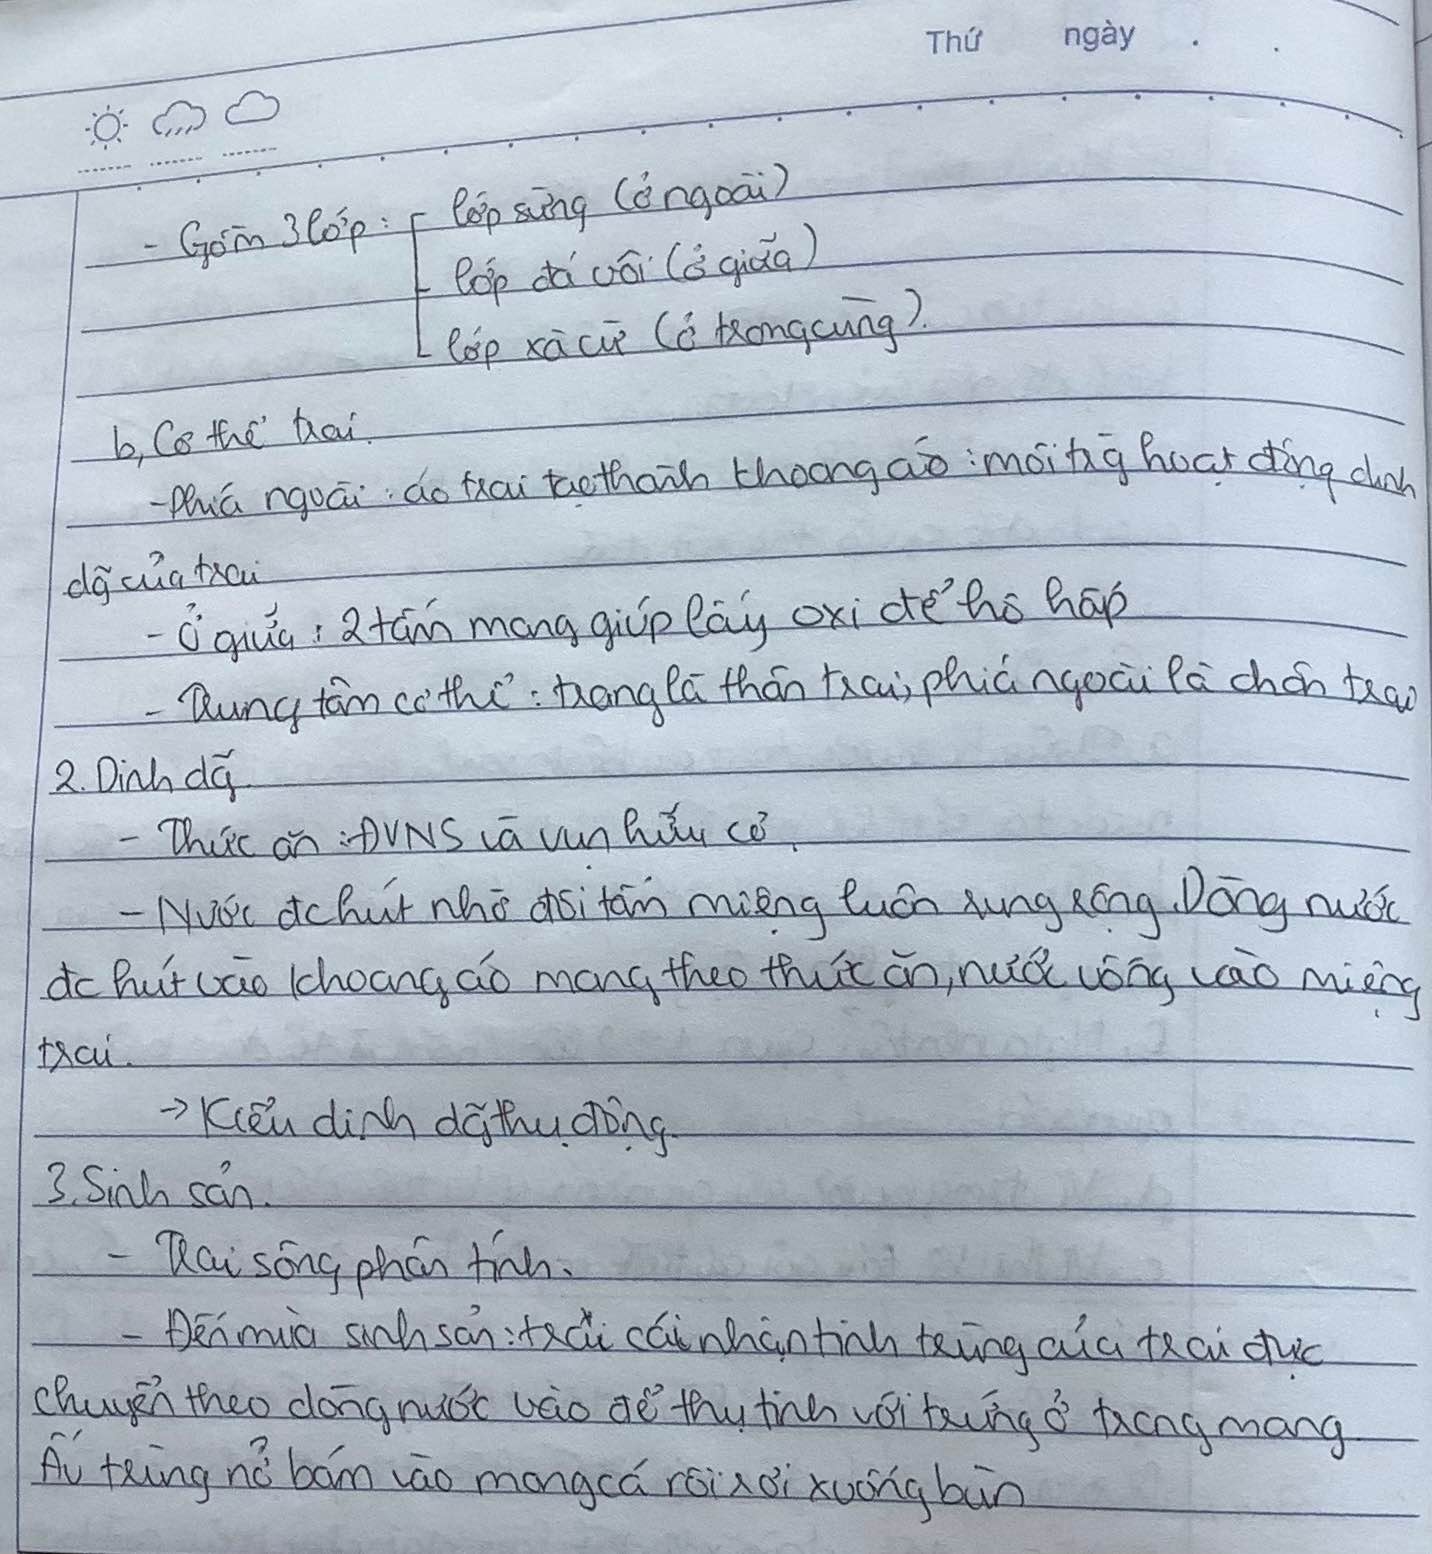 Thứ ngày
- Gồm 3 lớp: lớp sừng (ở ngoài)
lớp đá vôi (ở giữa)
lớp xà cừ (ở trong cùng).
b, Cơ thể trai.
- Phía ngoài: áo trai tạo thành khoang áo: môi trg hoạt động dinh
dg̃ của trai
- Ở giữa: 2 tấm mang giúp lấy oxi để hô hấp
- Trung tâm cơ thể: trong là thân trai, phía ngoài là chân trai
2. Dinh dg̃
- Thức ăn: ĐVNS và vụn hữu cơ.
- Nước đc hút nhờ đôi tấm miệng luôn rung rộng. Dòng nước
đc hút vào khoang áo mang theo thức ăn, nước vòng vào miệng
trai.
→ Kiểu dinh dg̃ thụ động.
3. Sinh sản.
- Trai sống phân tính.
- Đến mùa sinh sản: trai cái nhận tinh trùng của trai đực
chuyển theo dòng nước vào để thụ tinh với trứng ở trong mang
Ấu trùng nở bám vào mang cá rồi rơi xuống bùn